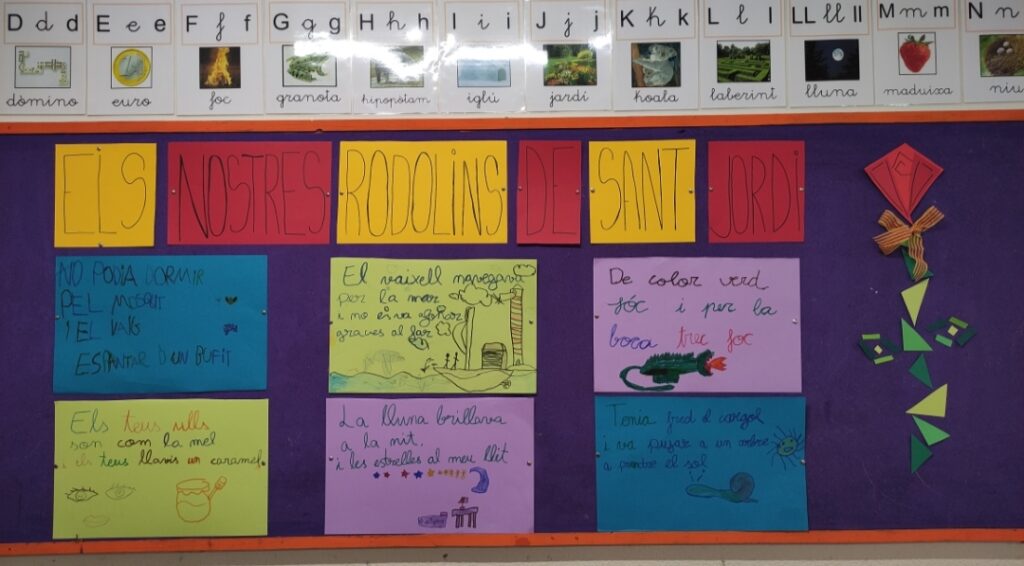 D d d E e e F f f G g g H h h I i i J j j K k k L l l LL ll ll M m m N n
dòmino euro foc granota hipopòtam iglú jardí koala laberint lluna maduixa niu
ELS NOSTRES RODOLINS DE SANT JORDI
NO PODIA DORMIR
PEL
I EL VAIG
ESPANTAR D'UN BUFIT
El vaixell navegava
per la mar
i no es va afonar
al far
De color verd
sóc i per la
boca trec foc
Els teus ulls
son com la mel
i els teus llavis un caramel.
La lluna brillava
a la nit.
i les estrelles al meu llit
Tenia fred el cargol
i va pujar a un arbre
a prendre el sol